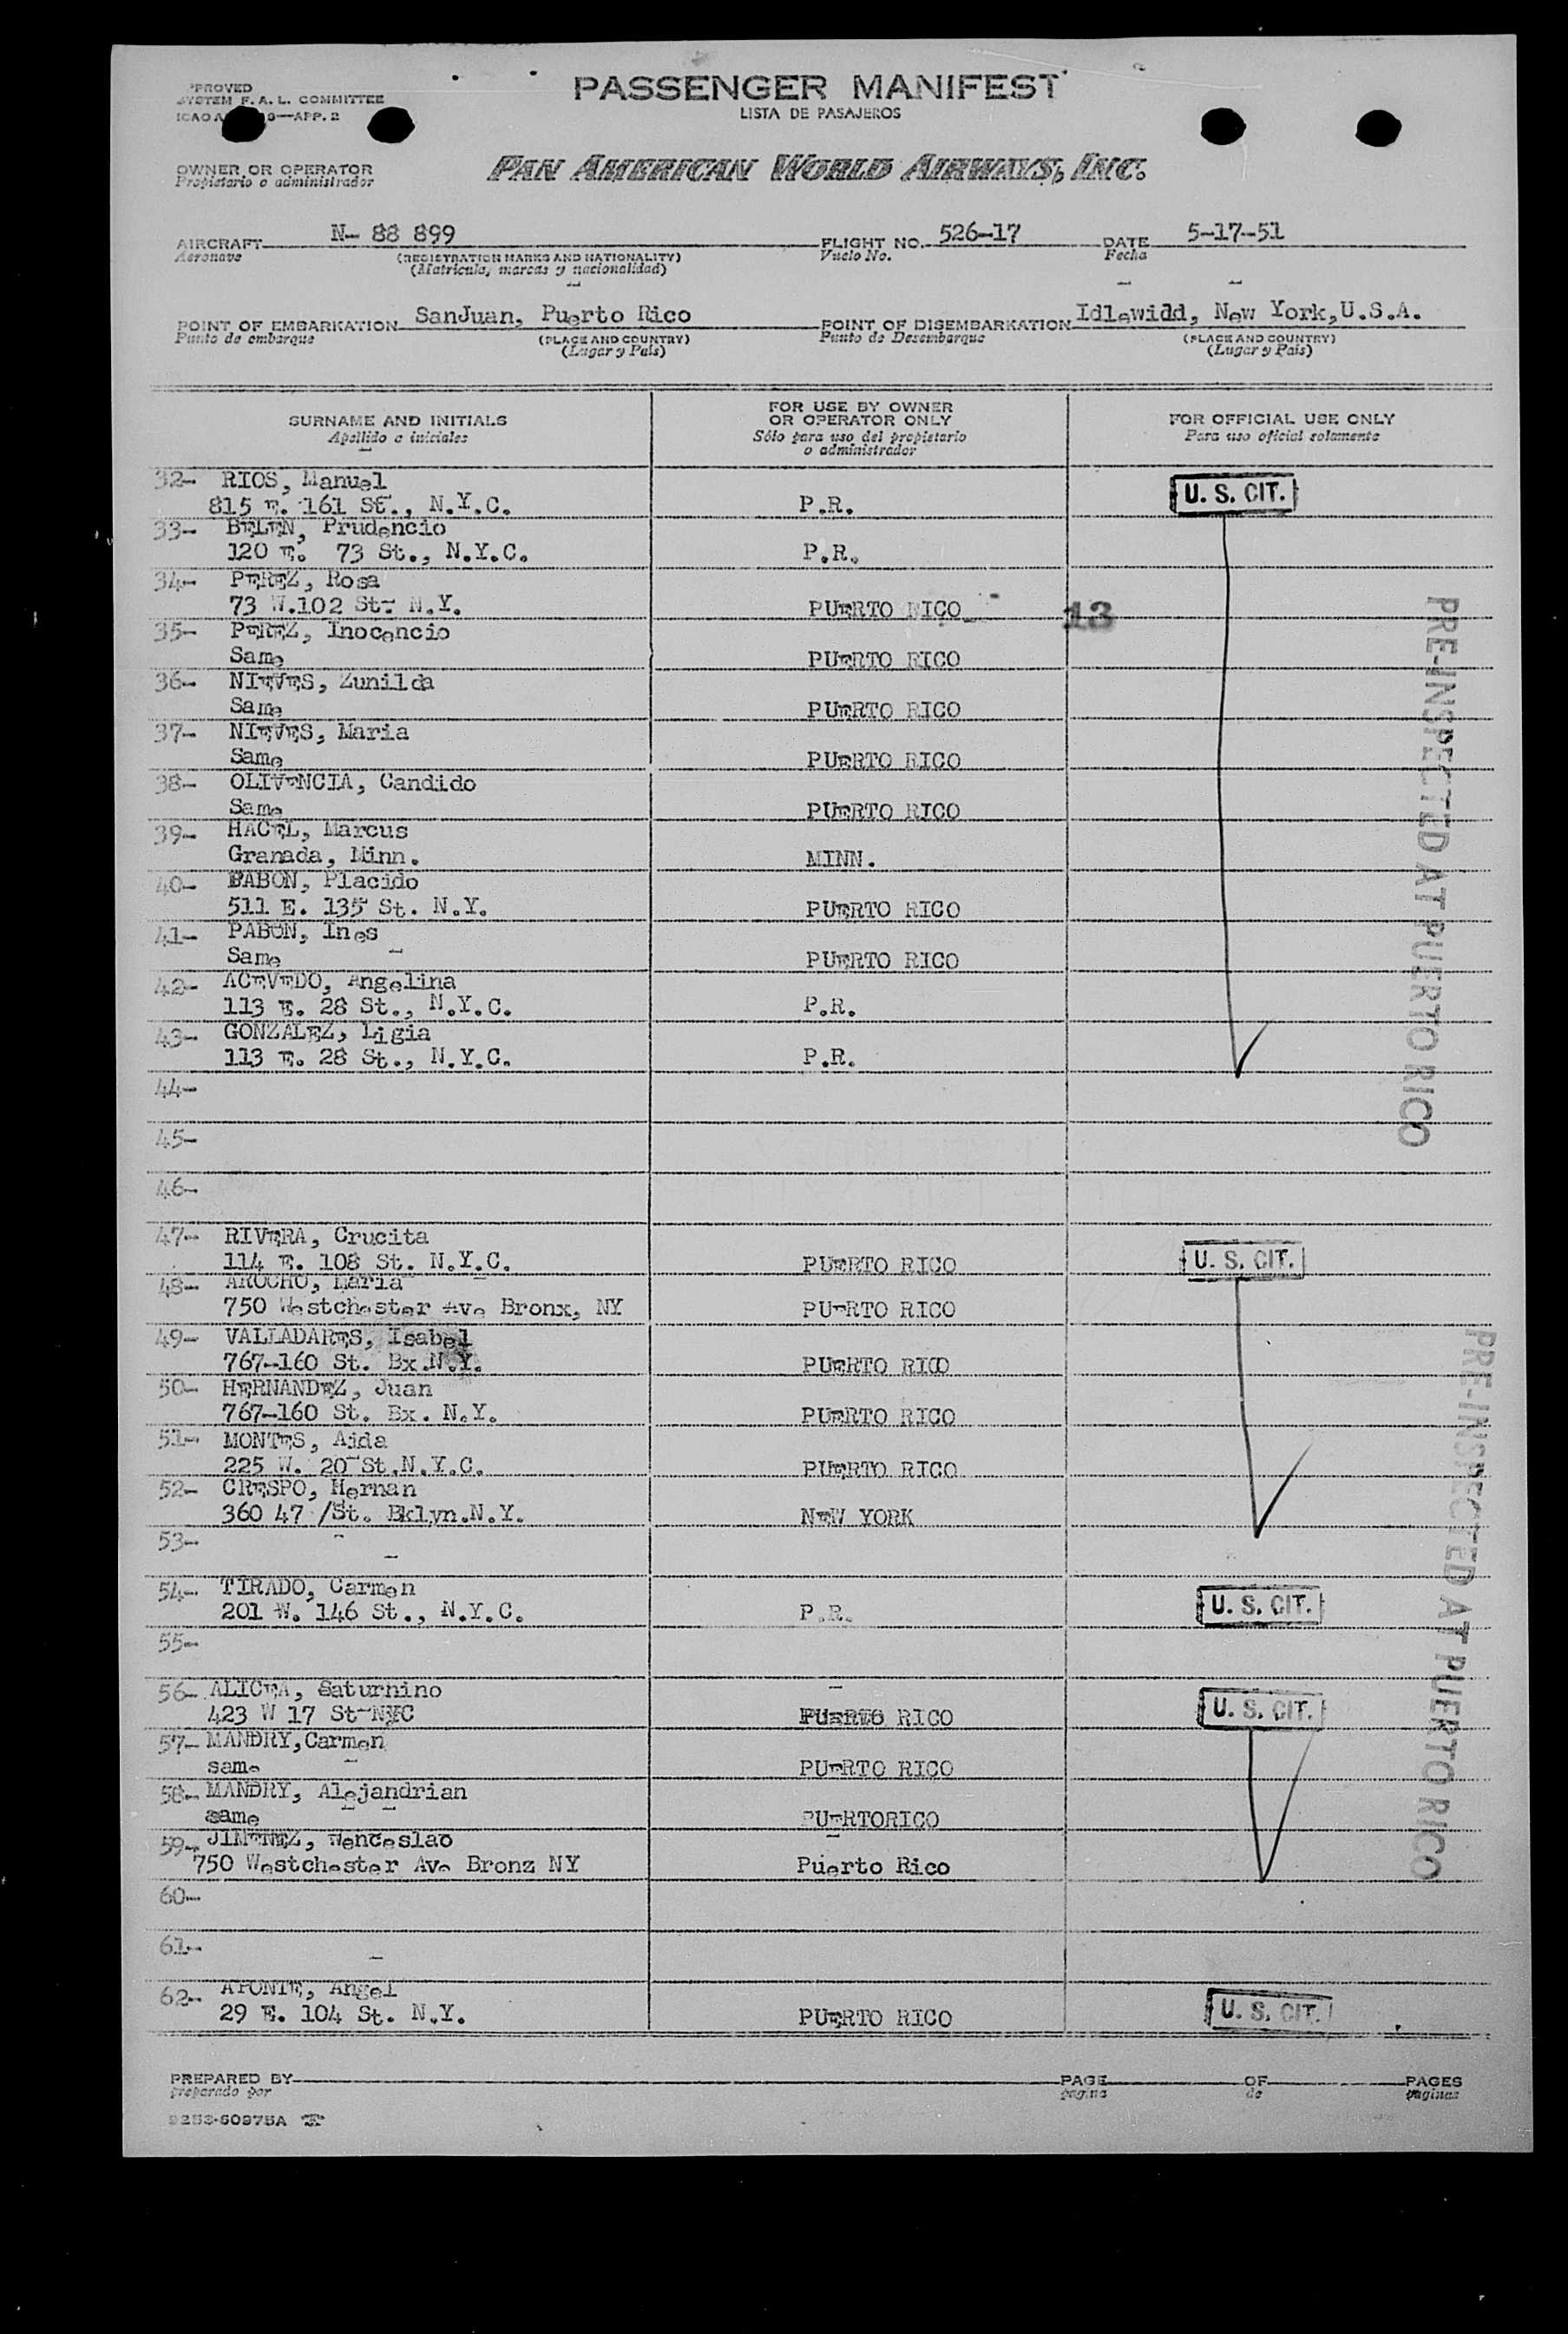 PROVED
SYSTEM F. A. L. COMMITTEE
ICAO A 9—APP. 2
PASSENGER MANIFEST
LISTA DE PASAJEROS
OWNER OR OPERATOR
Propietario o administrador
PAN AMERICAN WORLD AIRWAYS, INC.
AIRCRAFT N- 88 899 FLIGHT NO. 526-17 DATE 5-17-51
Aeronave (REGISTRATION MARKS AND NATIONALITY) Vuelo No. Fecha
(Matricula, marcas y nacionalidad)
POINT OF EMBARKATION SanJuan, Puerto Rico POINT OF DISEMBARKATION Idlewild, New York,U.S.A.
Punto de embarque (PLACE AND COUNTRY) Punto de Desembarque (PLACE AND COUNTRY)
(Lugar y Pais) (Lugar y Pais)
SURNAME AND INITIALS FOR USE BY OWNER OR OPERATOR ONLY FOR OFFICIAL USE ONLY
Apellido e iniciales Sólo para uso del propietario o administrador Para uso oficial solamente
32- RIOS, Manuel U. S. CIT.
815 E. 161 St., N.Y.C. P.R.
33- BELEN, Prudencio
120 E. 73 St., N.Y.C. P.R.
34- PEREZ, Rosa
73 W.102 St. N.Y. PUERTO RICO 13
35- PEREZ, Inocencio
Same PUERTO RICO
36- NIEVES, Zunilda
Same PUERTO RICO
37- NIEVES, Maria
Same PUERTO RICO
38- OLIVENCIA, Candido
Same PUERTO RICO
39- HACEL, Marcus
Granada, Minn. MINN.
40- PABON, Placido
511 E. 135 St. N.Y. PUERTO RICO
41- PABON, Ines
Same PUERTO RICO
42- ACEVEDO, Angelina
113 E. 28 St., N.Y.C. P.R.
43- GONZALEZ, Ligia
113 E. 28 St., N.Y.C. P.R.
PRE-INSPECTED AT PUERTO RICO
44-
45-
46-
47- RIVERA, Crucita
114 E. 108 St. N.Y.C. PUERTO RICO U. S. CIT.
48- AROCHO, Maria
750 Westchester Ave Bronx, NY PUERTO RICO
49- VALLADARES, Isabel
767-160 St. Bx.N.Y. PUERTO RICO
50- HERNANDEZ, Juan
767-160 St. Bx. N.Y. PUERTO RICO
51- MONTES, Aida
225 W. 20 St.N.Y.C. PUERTO RICO
52- CRESPO, Hernan
360 47 /St. Bklyn.N.Y. NEW YORK
53-
54- TIRADO, Carmen
201 W. 146 St., N.Y.C. P.R. U. S. CIT.
55-
56- ALICEA, Saturnino
423 W 17 St NYC PUERTO RICO U. S. CIT.
57- MANDRY,Carmen
same PUERTO RICO
58- MANDRY, Alejandrian
same PUERTORICO
59- JIMENEZ, Wenceslao
750 Westchester Ave Bronz NY Puerto Rico
PRE-INSPECTED AT PUERTO RICO
60-
61-
62- APONTE, Angel
29 E. 104 St. N.Y. PUERTO RICO U. S. CIT.
PREPARED BY PAGE OF PAGES
preparado por pagina de paginas
9253-60975A